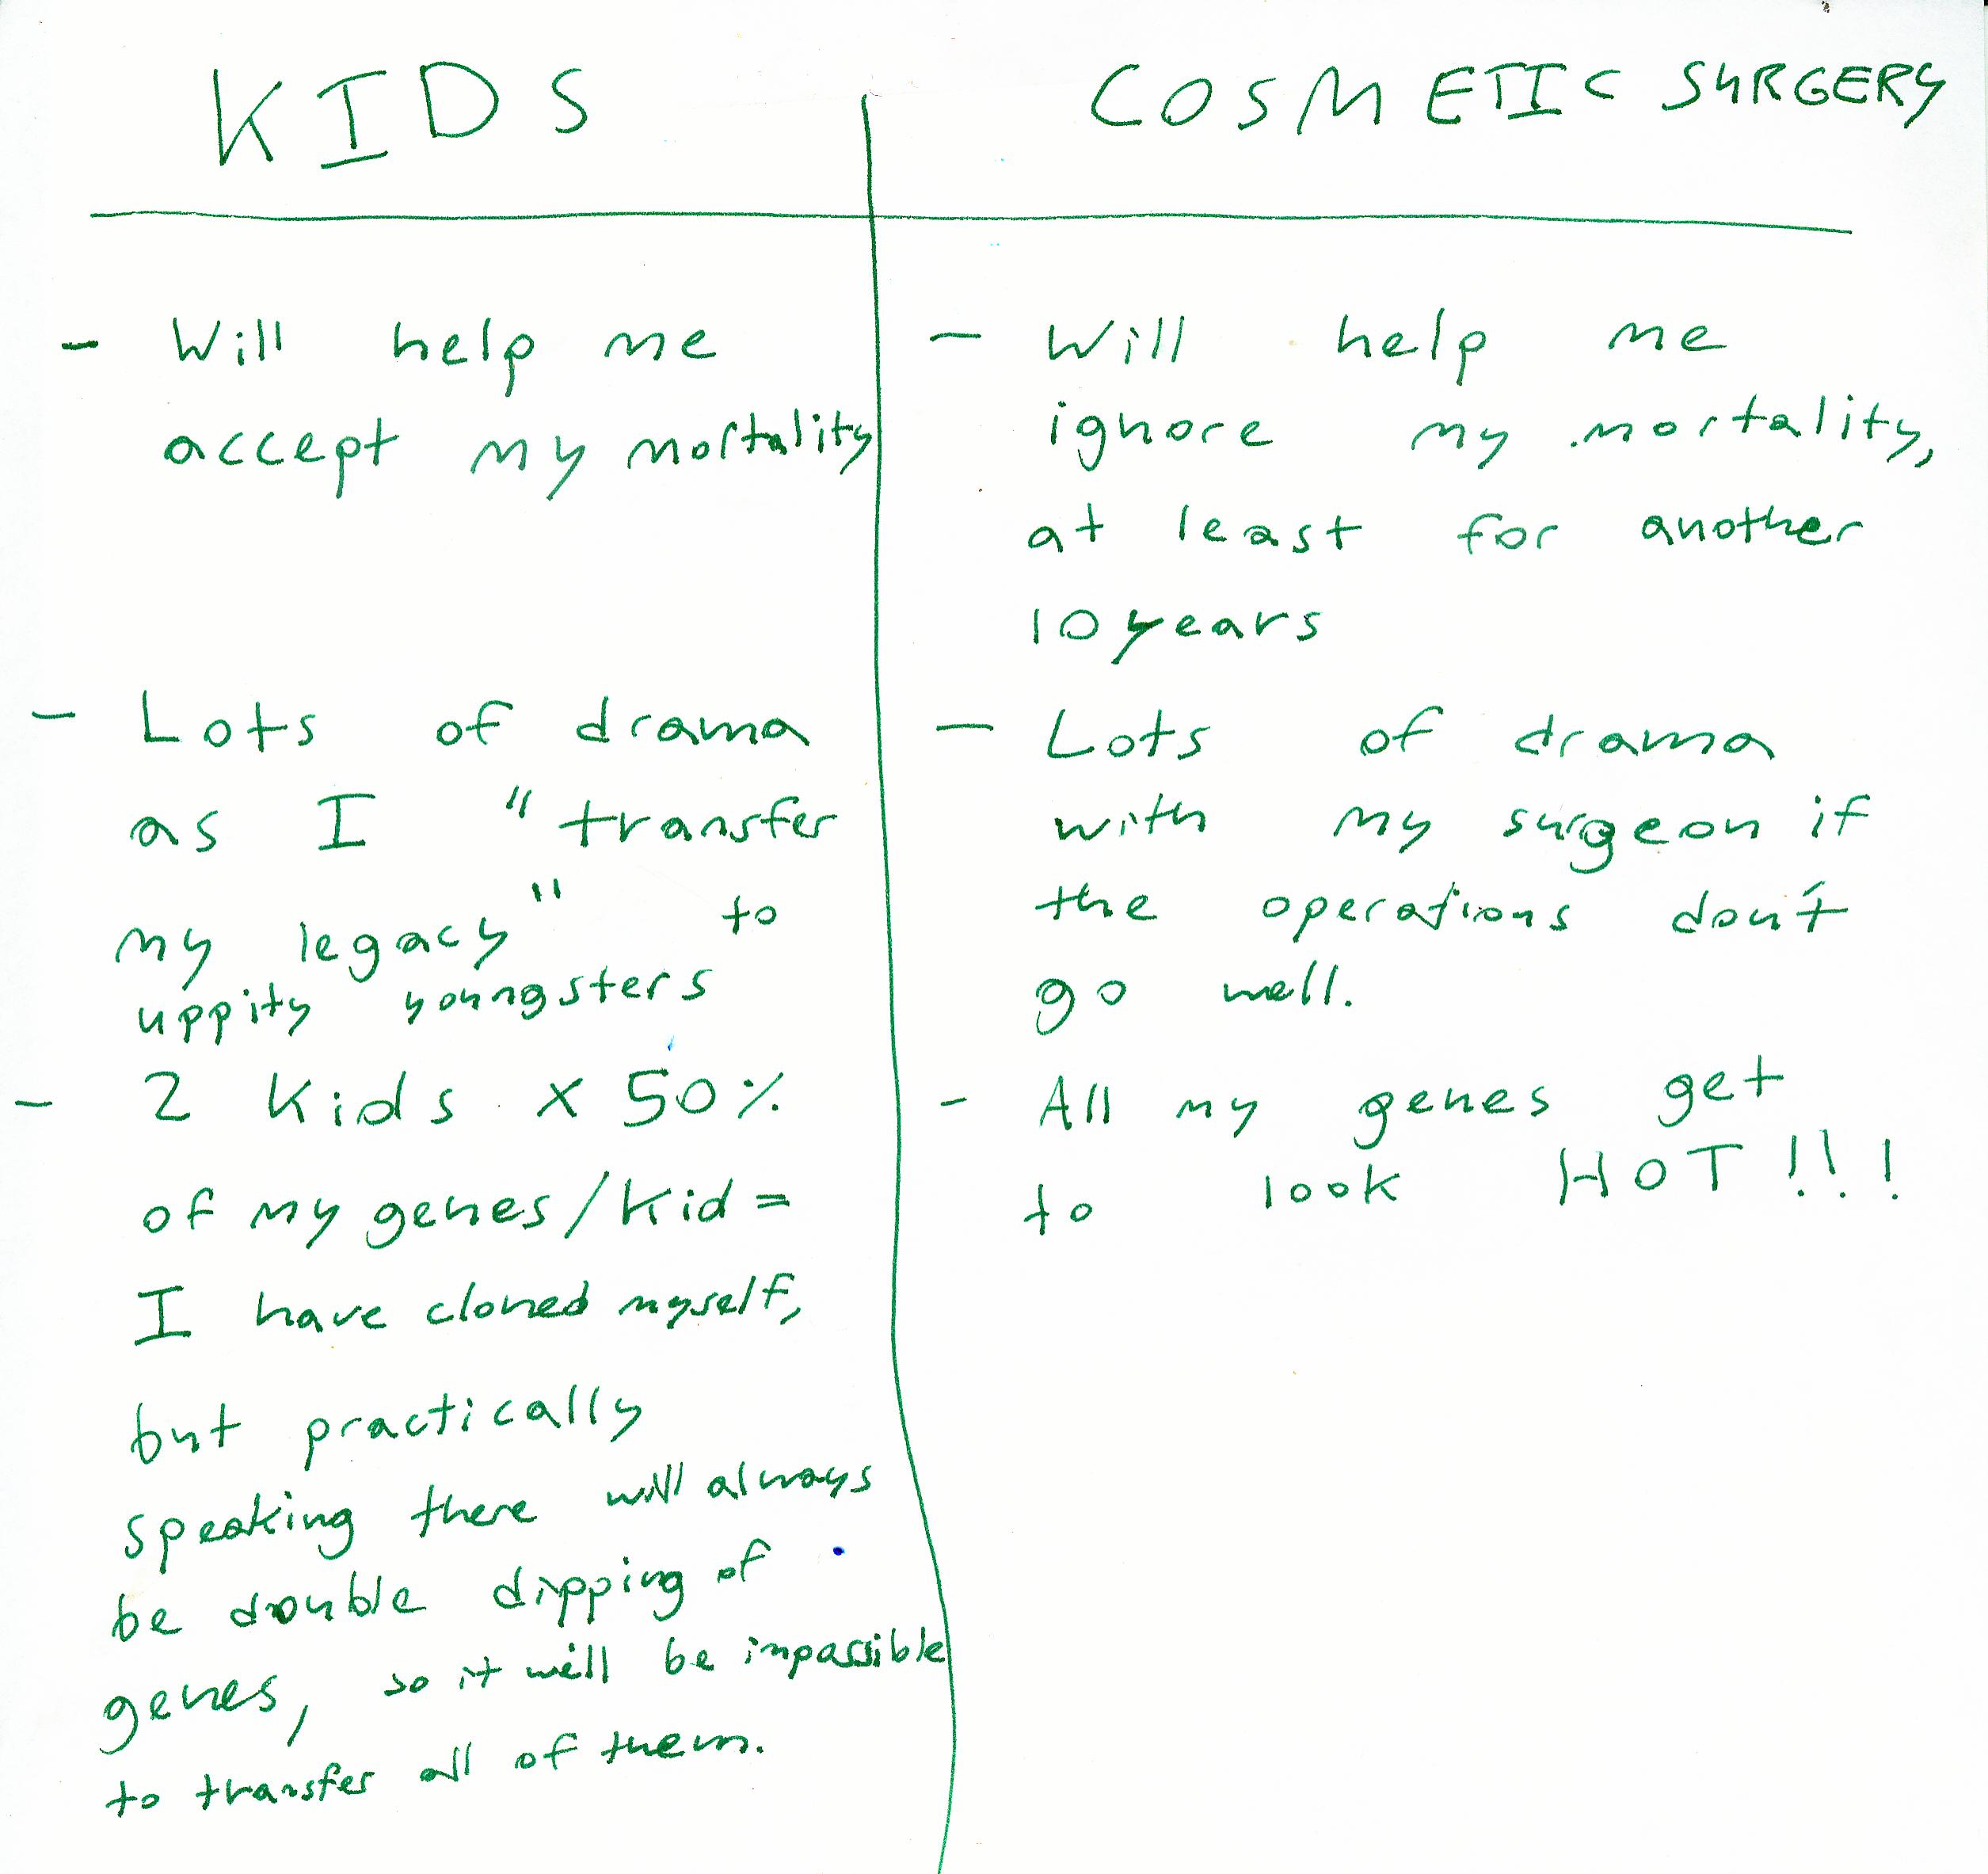 KIDS
- Will help me
accept my mortality
- Lots of drama
as I "transfer
my legacy" to
uppity youngsters
- 2 Kids x 50%
of my genes/Kid =
I have cloned myself,
but practically
speaking there will always
be double dipping of
genes, so it will be impossible
to transfer all of them.
COSMETIC SURGERY
- Will help me
ignore my mortality,
at least for another
10 years
- Lots of drama
with my surgeon if
the operations don't
go well.
- All my genes get
to look HOT!!!